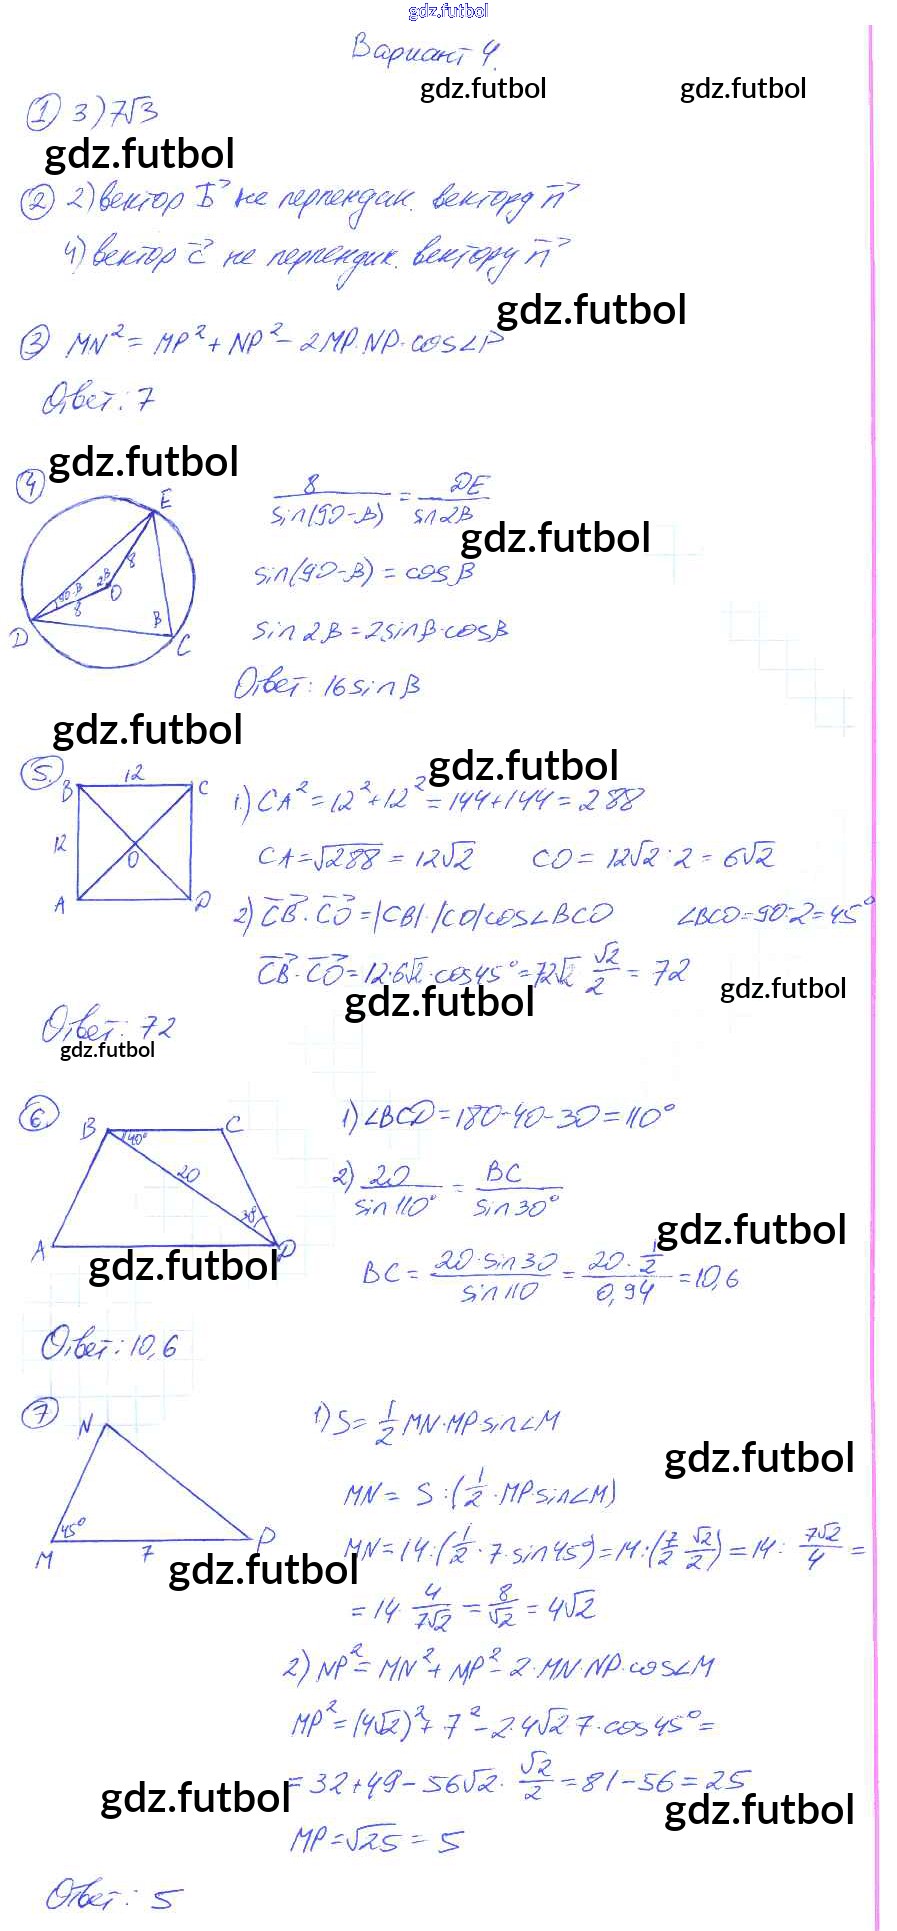 gdz.futbol
Вариант 4.
gdz.futbol gdz.futbol
① 3) 7√3
gdz.futbol
② 2) вектор b⃗ не перпендик. вектору n⃗
4) вектор c⃗ не перпендик. вектору n⃗
gdz.futbol
③ MN² = MP² + NP² - 2MP·NP·cos∠P
Ответ: 7
gdz.futbol
④ 8/sin(90-β) = DE/sin2β
E 8 2β O 90-β 8 D β C
gdz.futbol
sin(90-β) = cosβ
sin2β = 2sinβ·cosβ
Ответ: 16sinβ
gdz.futbol
gdz.futbol
⑤ B 12 C 12 O A D
1.) CA² = 12² + 12² = 144 + 144 = 288
CA = √288 = 12√2 CO = 12√2 : 2 = 6√2
2) CB⃗ · CO⃗ = |CB|·|CO|cos∠BCO ∠BCO = 90:2 = 45°
CB⃗ · CO⃗ = 12·6√2·cos45° = 72√2 √2/2 = 72
gdz.futbol gdz.futbol
Ответ: 72
gdz.futbol
⑥ B C 40° 20 30 A D
1) ∠BCD = 180-40-30 = 110°
2) 20/sin110° = BC/sin30°
gdz.futbol
gdz.futbol
BC = 20·sin30/sin110 = 20·1/2/0,94 = 10,6
Ответ: 10,6
⑦ N 45° M 7 P
1) S = 1/2 MN·MP sin∠M
gdz.futbol
MN = S : (1/2 · MP sin∠M)
MN = 14 : (1/2 · 7 · sin45°) = 14 : (7/2 √2/2) = 14 : 7√2/4 =
gdz.futbol
= 14 · 4/7√2 = 8/√2 = 4√2
2) NP² = MN² + MP² - 2·MN·NP·cos∠M
MP² = (4√2)² + 7² - 2·4√2·7·cos45° =
= 32 + 49 - 56√2 · √2/2 = 81 - 56 = 25
gdz.futbol gdz.futbol
MP = √25 = 5
Ответ: 5